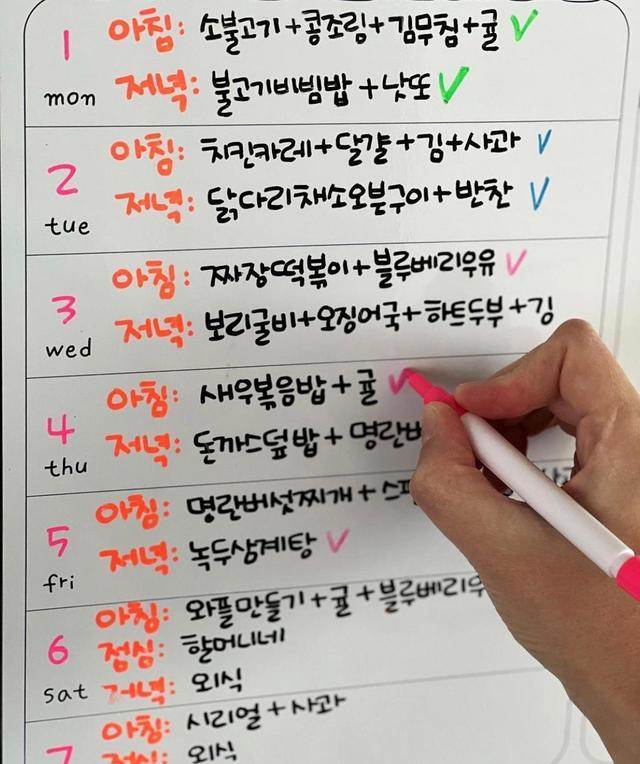 1
mon
아침: 소불고기+콩조림+김무침+귤 V
저녁: 불고기비빔밥+낫또 V
2
tue
아침: 치킨카레+달걀+김+사과 V
저녁: 닭다리채소오븐구이+반찬 V
3
wed
아침: 짜장떡볶이+블루베리우유 V
저녁: 보리굴비+오징어국+하트두부+김
4
thu
아침: 새우볶음밥+귤 V
저녁: 돈까스덮밥+
5
fri
아침: 명란버섯찌개+
저녁: 녹두삼계탕 V
6
sat
아침: 와플만들기+귤+블루베리우
점심: 할머니네
저녁: 외식
7
아침: 시리얼+사과
점심: 외식